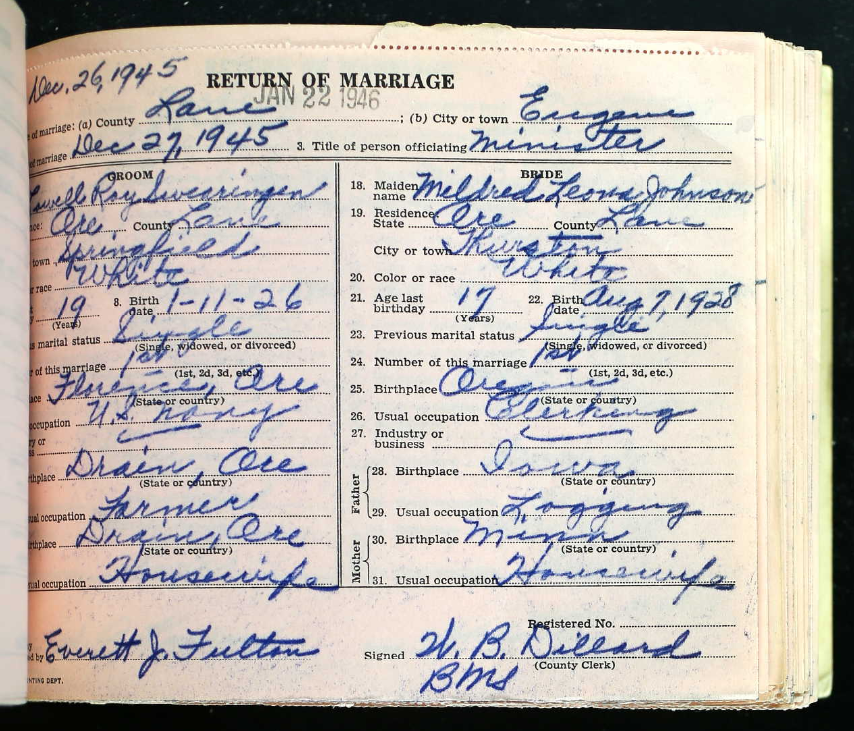 Dec. 26, 1945
RETURN OF MARRIAGE
JAN 22 1946
of marriage: (a) County Lane ; (b) City or town Eugene
of marriage Dec 27, 1945 3. Title of person officiating Minister
GROOM
Roy Swearingen
Ore County Lane
town Springfield
race White
19 8. Birth date 1-11-26
(Years)
marital status Single
(Single, widowed, or divorced)
of this marriage 1st
(1st, 2d, 3d, etc.)
Florence, Ore
(State or country)
occupation U.S. Navy
y or
Drain, Ore
(State or country)
occupation Farmer
Drain, Ore
(State or country)
occupation Housewife
BRIDE
18. Maiden name Mildred Leona Johnson
19. Residence State Ore County Lane
City or town Thurston
20. Color or race White
21. Age last birthday 17 22. Birth date Aug 7, 1928
(Years)
23. Previous marital status Single
(Single, widowed, or divorced)
24. Number of this marriage 1st
(1st, 2d, 3d, etc.)
25. Birthplace Oregon
(State or country)
26. Usual occupation Clerking
27. Industry or business
Father
28. Birthplace Iowa
(State or country)
29. Usual occupation Logging
Mother
30. Birthplace Minn
(State or country)
31. Usual occupation Housewife
Registered No.
by Everett J. Fulton
Signed W. B. Dillard
(County Clerk)
BMS
NTING DEPT.